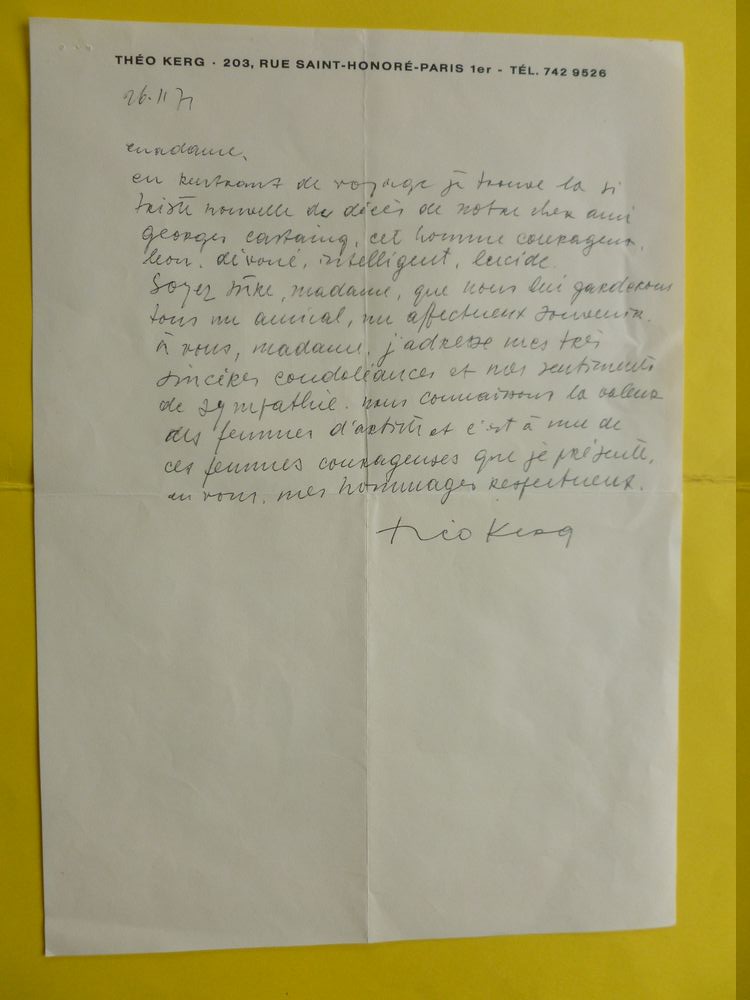 THÉO KERG · 203, RUE SAINT-HONORÉ-PARIS 1er - TÉL. 742 9526
26.11 71
madame,
en rentrant de voyage je trouve la si
triste nouvelle du décès de notre cher ami
georges castaing, cet homme courageux,
bon, dévoué, intelligent, lucide.
Soyez sûre, madame, que nous lui garderons
tous un amical, un affectueux souvenir.
à vous, madame, j'adresse mes très
sincères condoléances et mes sentiments
de sympathie. nous connaissons la valeur
des femmes d'artistes et c'est à une de
ces femmes courageuses que je présente,
en vous, mes hommages respectueux.
théo Kerg